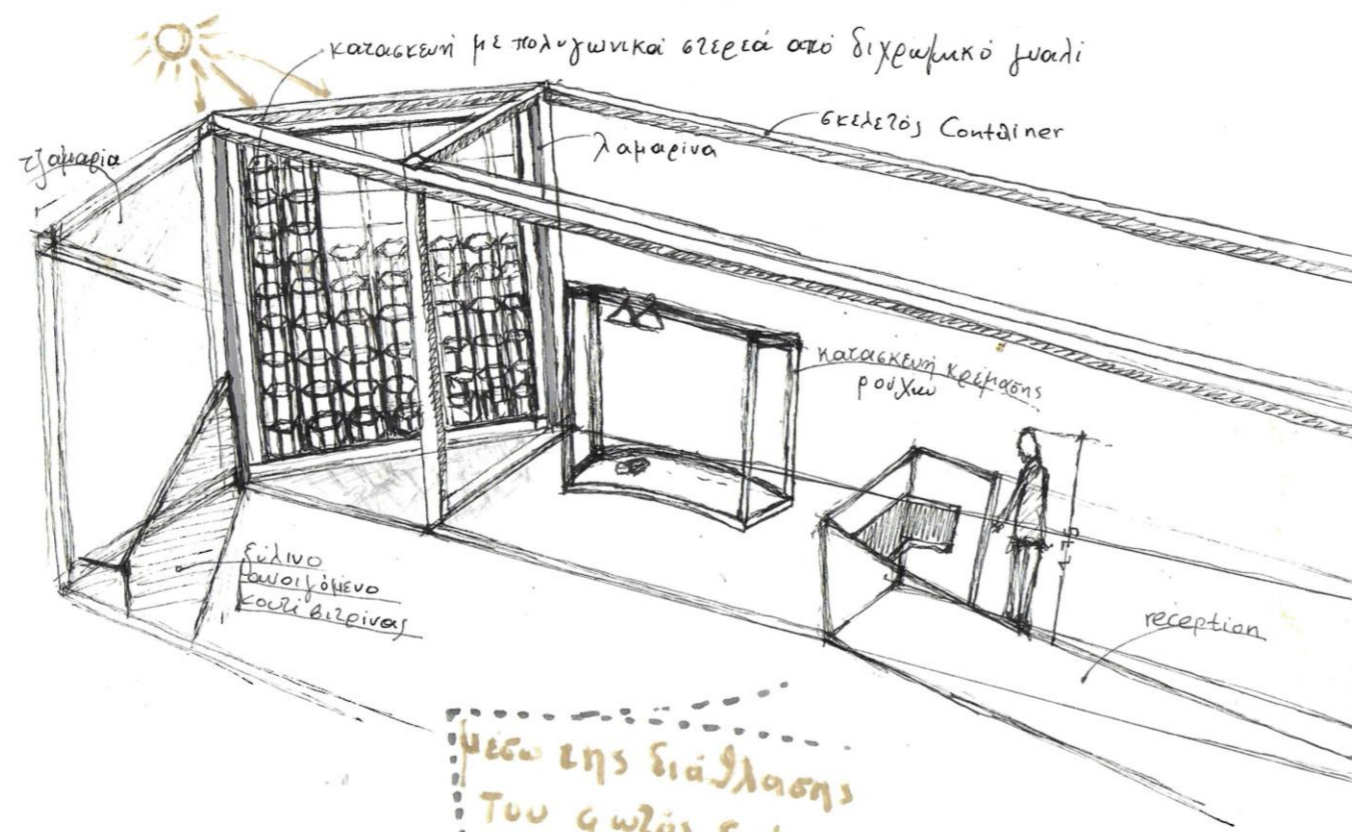 κατασκευή με πολυγωνικά στερεά από διχρωμικό γυαλί
σκελετός Container
λαμαρίνα
τζαμαρία
κατασκευή κρέμασης
ρούχων
ξύλινο
ανοιγόμενο
κουτί βιτρίνας
reception
μέσω της διάθλασης
του φωτός